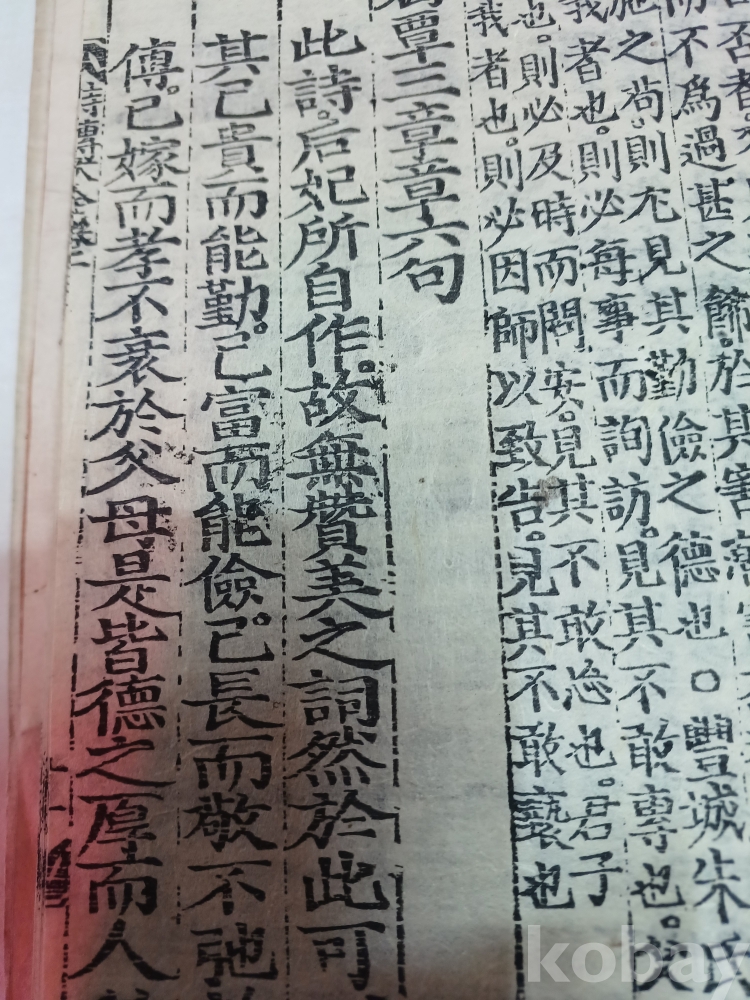 不爲過甚之飾於其害
施之尙則尤見其勤儉之德也○豐城朱氏
我者也則必每事而詢訪見其不敢專也
也則必及時而問安見其不敢恣也君子
我者也則必因師以致告見其不敢褻也
覃三章章六句
此詩后妃所自作故無贊美之詞然於此可
其已貴而能勤已富而能儉已長而敬不弛
傅已嫁而孝不衰於父母是皆德之厚而人
詩傳大全卷之
kobay